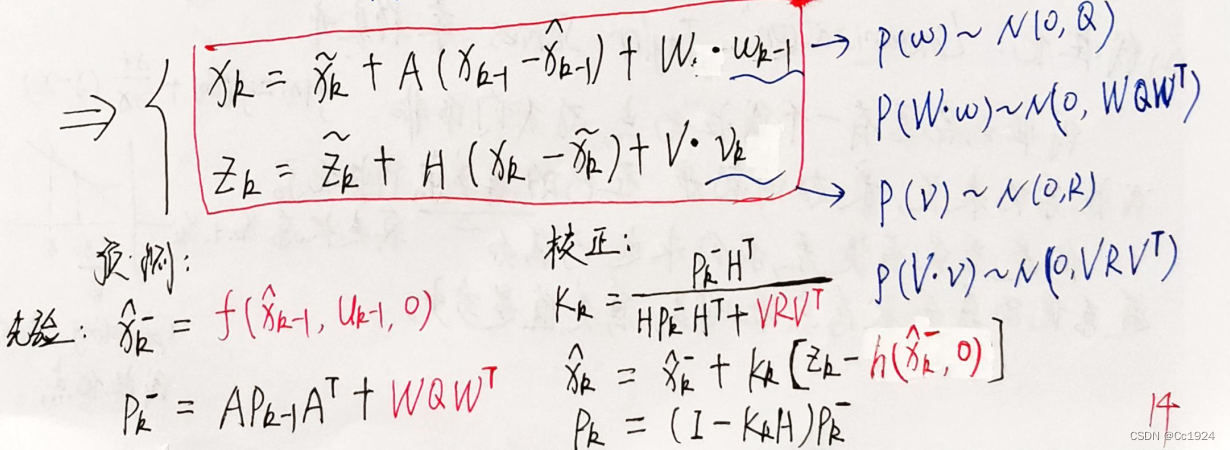 ⇒ { x_k = x̃_k + A (x_{k-1} - x̂_{k-1}) + W · w_{k-1} → P(w) ~ N(0, Q)
P(W·w) ~ N(0, WQWᵀ)
z_k = z̃_k + H (x_k - x̃_k) + V · v_k → P(v) ~ N(0, R)
P(V·v) ~ N(0, VRVᵀ)
预测:
先验: x̂_k⁻ = f(x̂_{k-1}, u_{k-1}, 0)
P_k⁻ = AP_{k-1}Aᵀ + WQWᵀ
校正:
K_k = P_k⁻Hᵀ / HP_k⁻Hᵀ + VRVᵀ
x̂_k = x̂_k⁻ + K_k [z_k - h(x̂_k⁻, 0)]
P_k = (I - K_kH)P_k⁻
14
CSDN @Cc1924